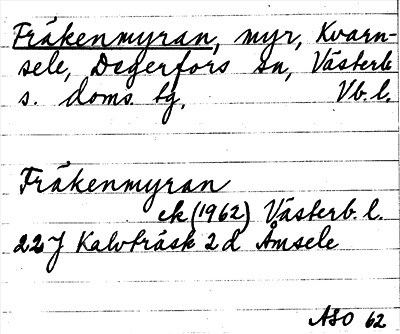 Fräkenmyran, myr, Kvarn-
sele, Degerfors sn, Västerb
s. doms. tg, Vb. l.
Fräkenmyran
ek (1962) Västerb. l.
22J Kalvträsk 2d Åmsele
ASO 62